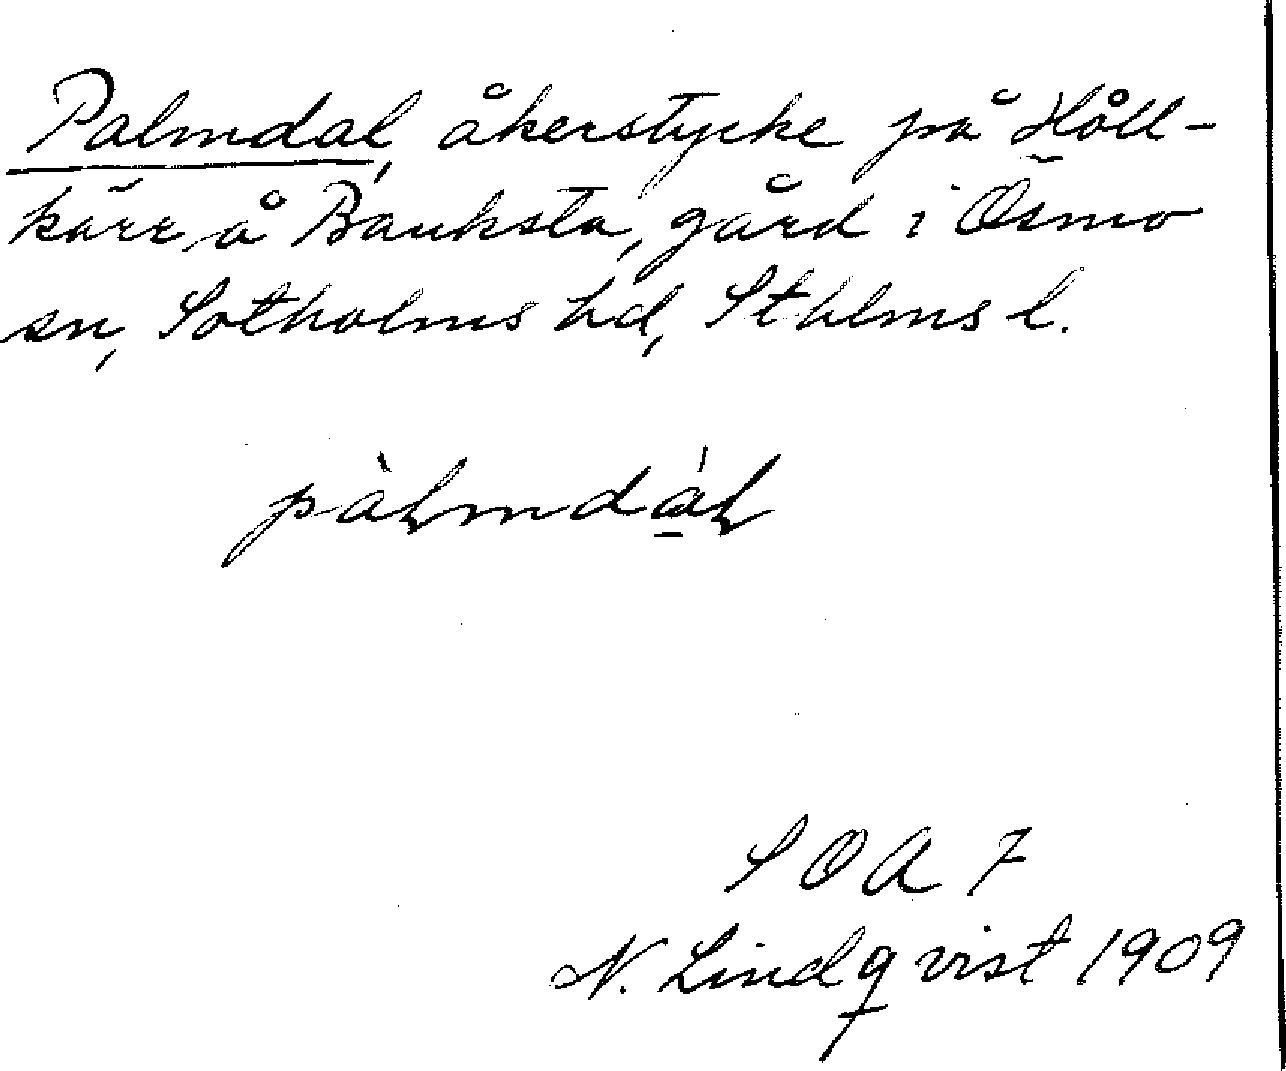 Palmdal, åkerstycke på Håll-
kärr å Bauksta, gård i Ösmo
sn, Sotholms hd, Sthlms l.
pàlmdál
SOA 7
N. Lindqvist 1909